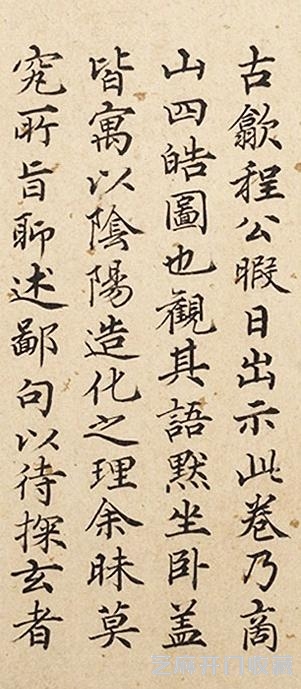 古歙程公暇日出示此卷乃商
山四皓圖也觀其語默坐卧盖
皆寓以陰陽造化之理余昧莫
究所旨聊述鄙句以待探玄者